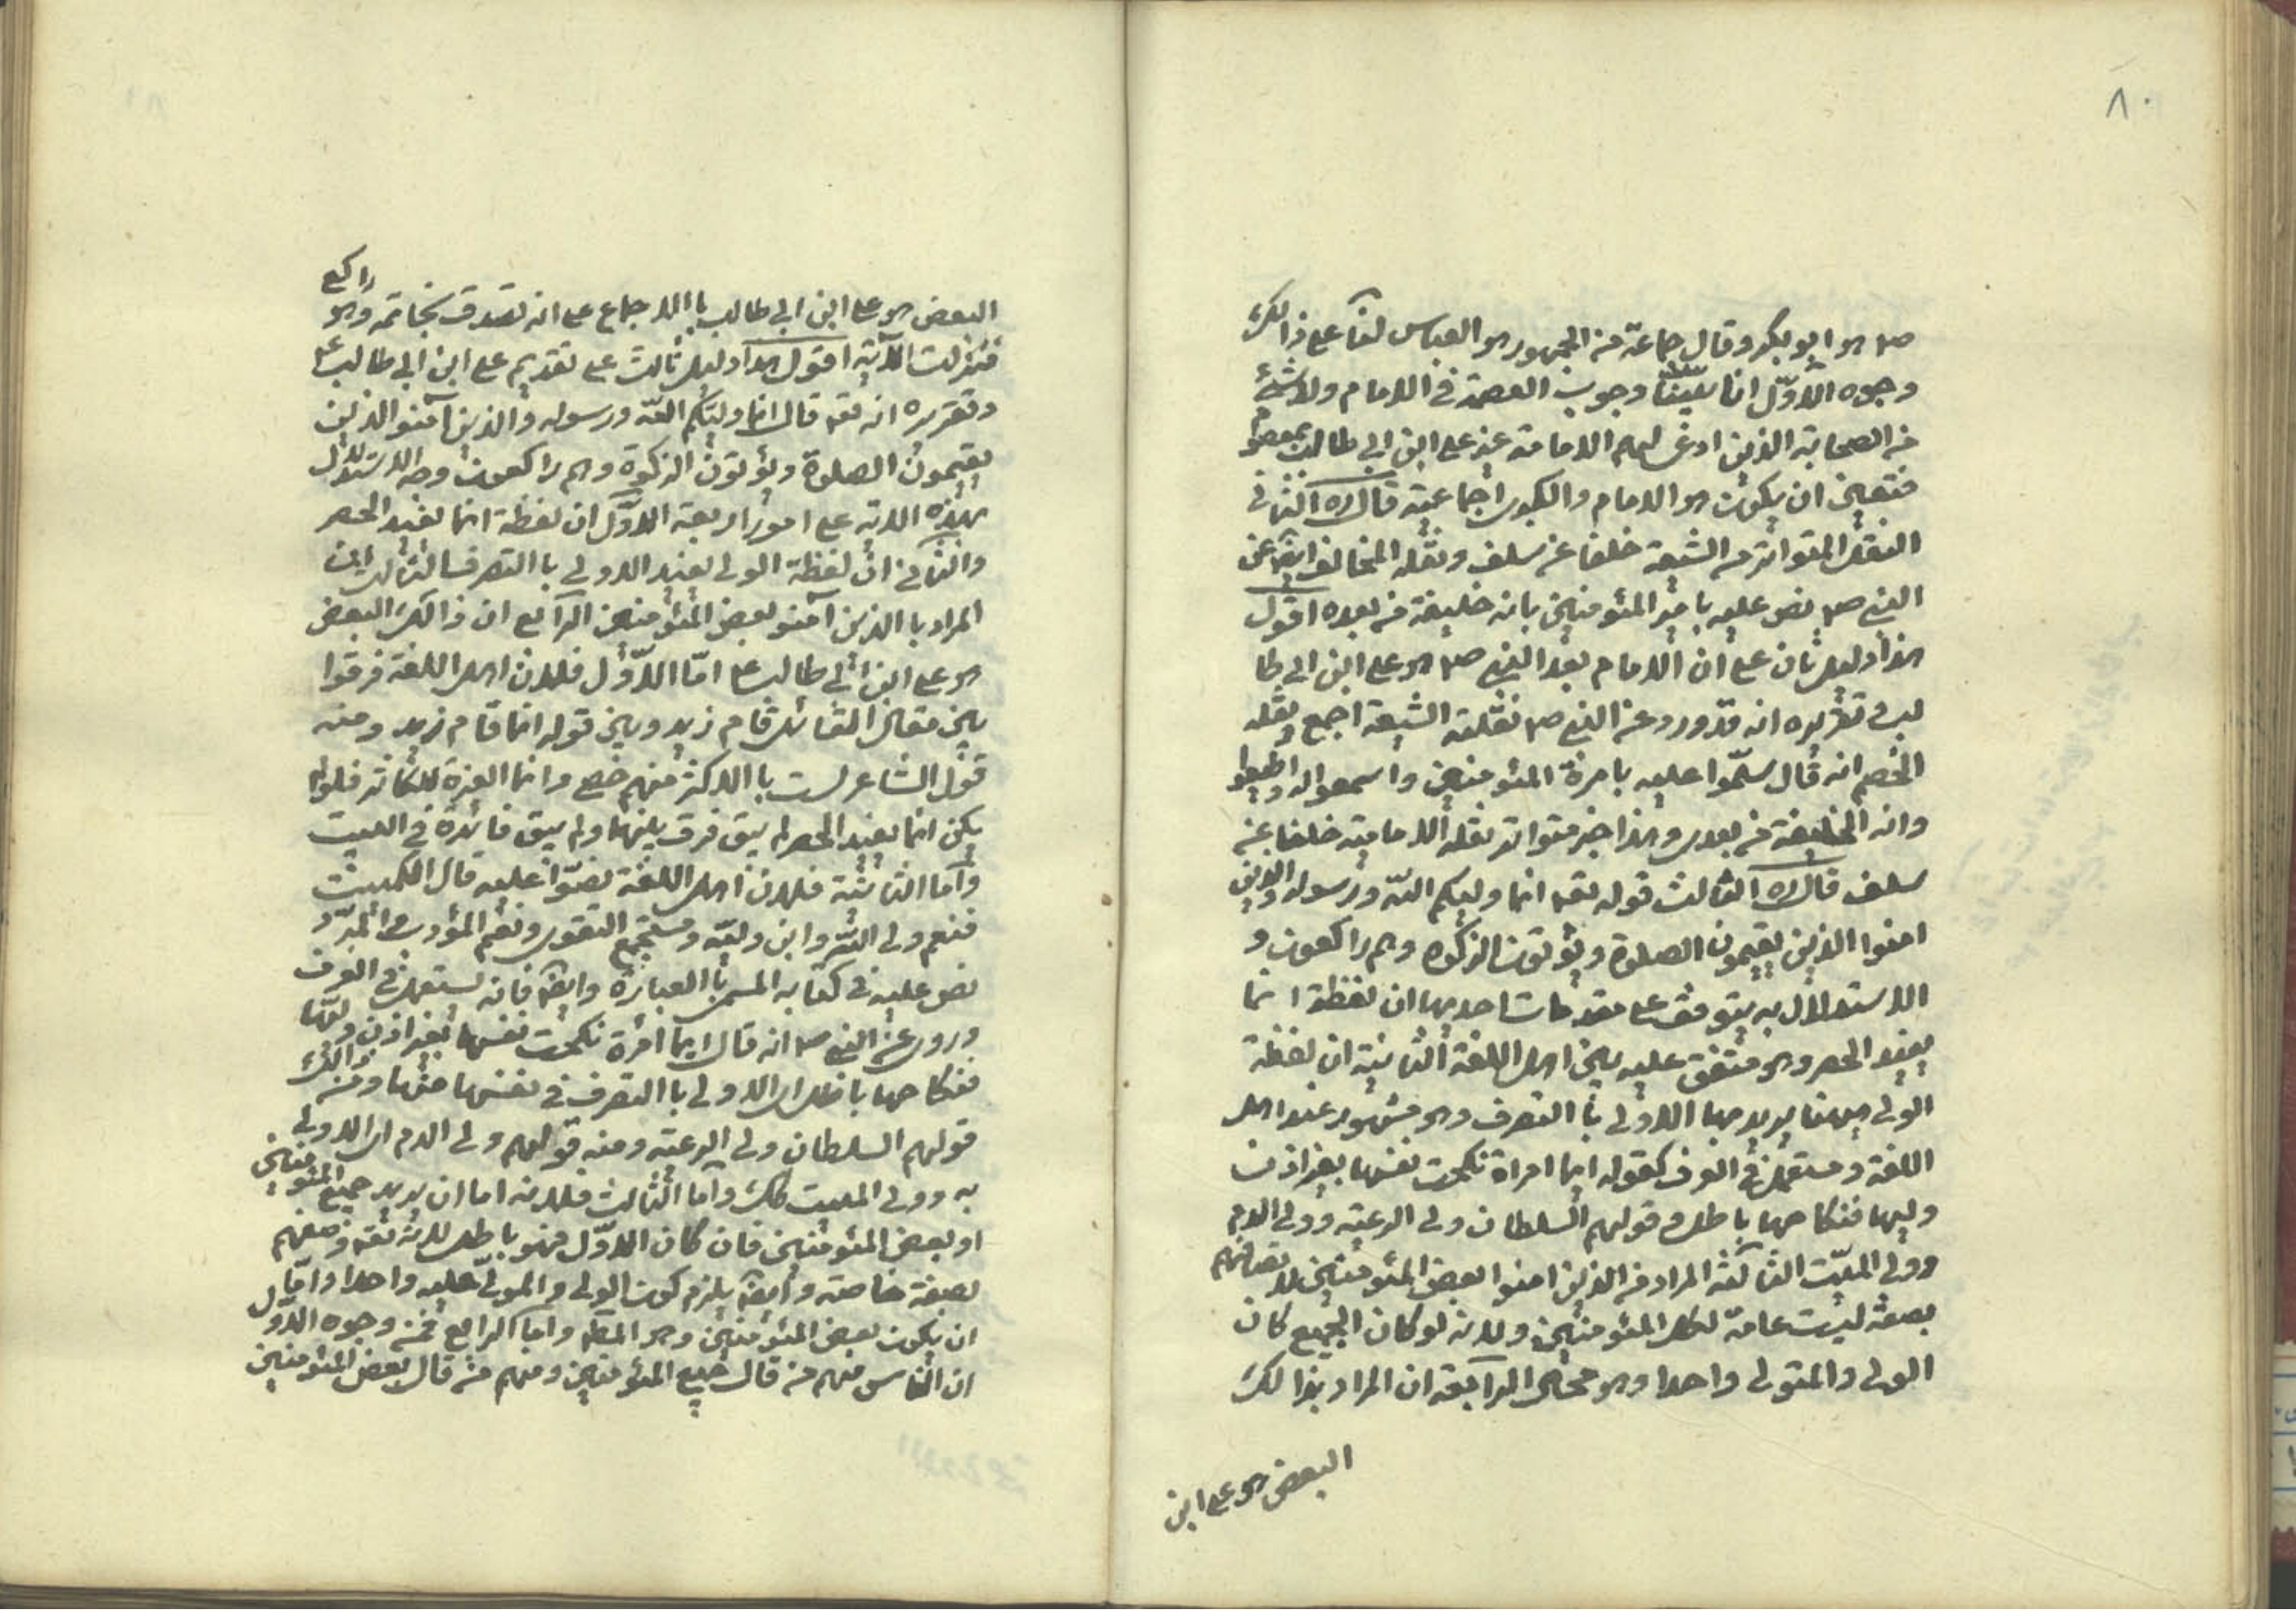 ٨٠
صم هو ابو بكر وقال جماعة من الجمهور هو العباس لنا على ذالك
وجوه الاول انا بينا وجوب العصمة فى الامام ولا شئ
من الصحابة الذين ادعى لهم الامامة غير على ابن ابى طالب بمعصوم
فتعين ان يكون هو الامام والكبرى اجماعية قال ره الثانى
النقل المتواتر من الشيعة خلفا عن سلف ونقله المخالف ايضا عن
النبى صم نص عليه بامير المئومنين بانه خليفة من بعده اقول
هذا دليل ثان على ان الامام بعد النبى صم هو على ابن ابى طا
لب و تقريره انه قد ورد عن النبى صم نقلته الشيعة اجمع ونقله
الخصم انه قال سلموا عليه بامرة المئومنين واسمعوا له واطيعوا
وانه الخليفة من بعدى وهذا خبر متواتر نقله الامامية خلفا عن
سلف قال ره الثالث قوله تعه انما وليكم الله ورسوله والذين
امنوا الذين يقيمون الصلوة ويؤتون الزكوه وهم راكعون و
الاستدلال به يتوقف على مقدمات احديها ان لفظة انما
يفيد الحصر وهو متفق عليه بين اهل اللغة الثانية ان لفظة
الولى ههنا يريد بها الاولى با التصرف وهو مشهور عند اهل
اللغة و مستعمل فى العرف كقوله ايما امراة نكحت نفسها بغير اذن
وليها فنكاحها باطل و قولهم السلطان ولى الرعية وولى الدم
وولى الميت الثالثة المراد من الذين امنوا بعض المئومنين لاتصافهم
بصفة ليست عامة لكل المئومنين ولانه لو كان الجميع كان
الولى والمتولى واحدا وهو محال الرابعة ان المراد بذالك
البعض هو على ابن
البعض هو على ابن ابى طالب با الاجماع على انه تصدق بخاتمه وهو راكع
فنزلت الآية اقول هذا دليل ثالث على تقديم على ابن ابى طالب ع
وتقريره انه تعه قال انما وليكم الله ورسوله والذين آمنو الذين
يقيمون الصلوة ويؤتون الزكوة وهم راكعون وجه الاستدلال
بهذه الاية على امور اربعة الاول ان لفظة انما تفيد الحصر
والثانى ان لفظة الولى يفيد الاولى با التصرف الثالث ان
المراد با الذين آمنو بعض المئومنين الرابع ان ذالك البعض
هو على ابن ابى طالب ع اما الاول فلان اهل اللغة فرقوا
بين مقال القائل قام زيد وبين قوله انما قام زيد ومنه
قول الشاعر لست با الاكثر منهم حصى وانما العزة للكاثر فلو لم
يكن انما يفيد الحصر لم يبق فرق بينهما ولم يبق فائدة فى البيت
واما الثانية فلان اهل اللغة نصوا عليه قال الكميت
فنعم ولى الله وابن وليه ومنتجع التقوى ونعم المؤدب والمبرد
نص عليه فى كتابه المسمى با العبارة وايضا فانه يستعمل فى العرف
وروى عن النبى صم انه قال ايما امرة نكحت نفسها بغير اذن وليها
فنكاحها باطل اى الاولى با التصرف فى نفسها منها ومن ذالك
قولهم السلطان ولى الرعية ومنه قولهم ولى الدم اى الاولى
به وولى الميت كك واما الثالث فلانه اما ان يريد جميع المئومنين
او بعض المئومنين فان كان الاول فهو باطل لانه تعه وصفهم
بصفة خاصة وايضا يلزم كون الولى والمولى عليه واحدا واما
ان يكون بعض المئومنين وهو المطم واما الرابع فمن وجوه الاول
ان الناس منهم من قال جميع المئومنين ومنهم من قال بعض المئومنين